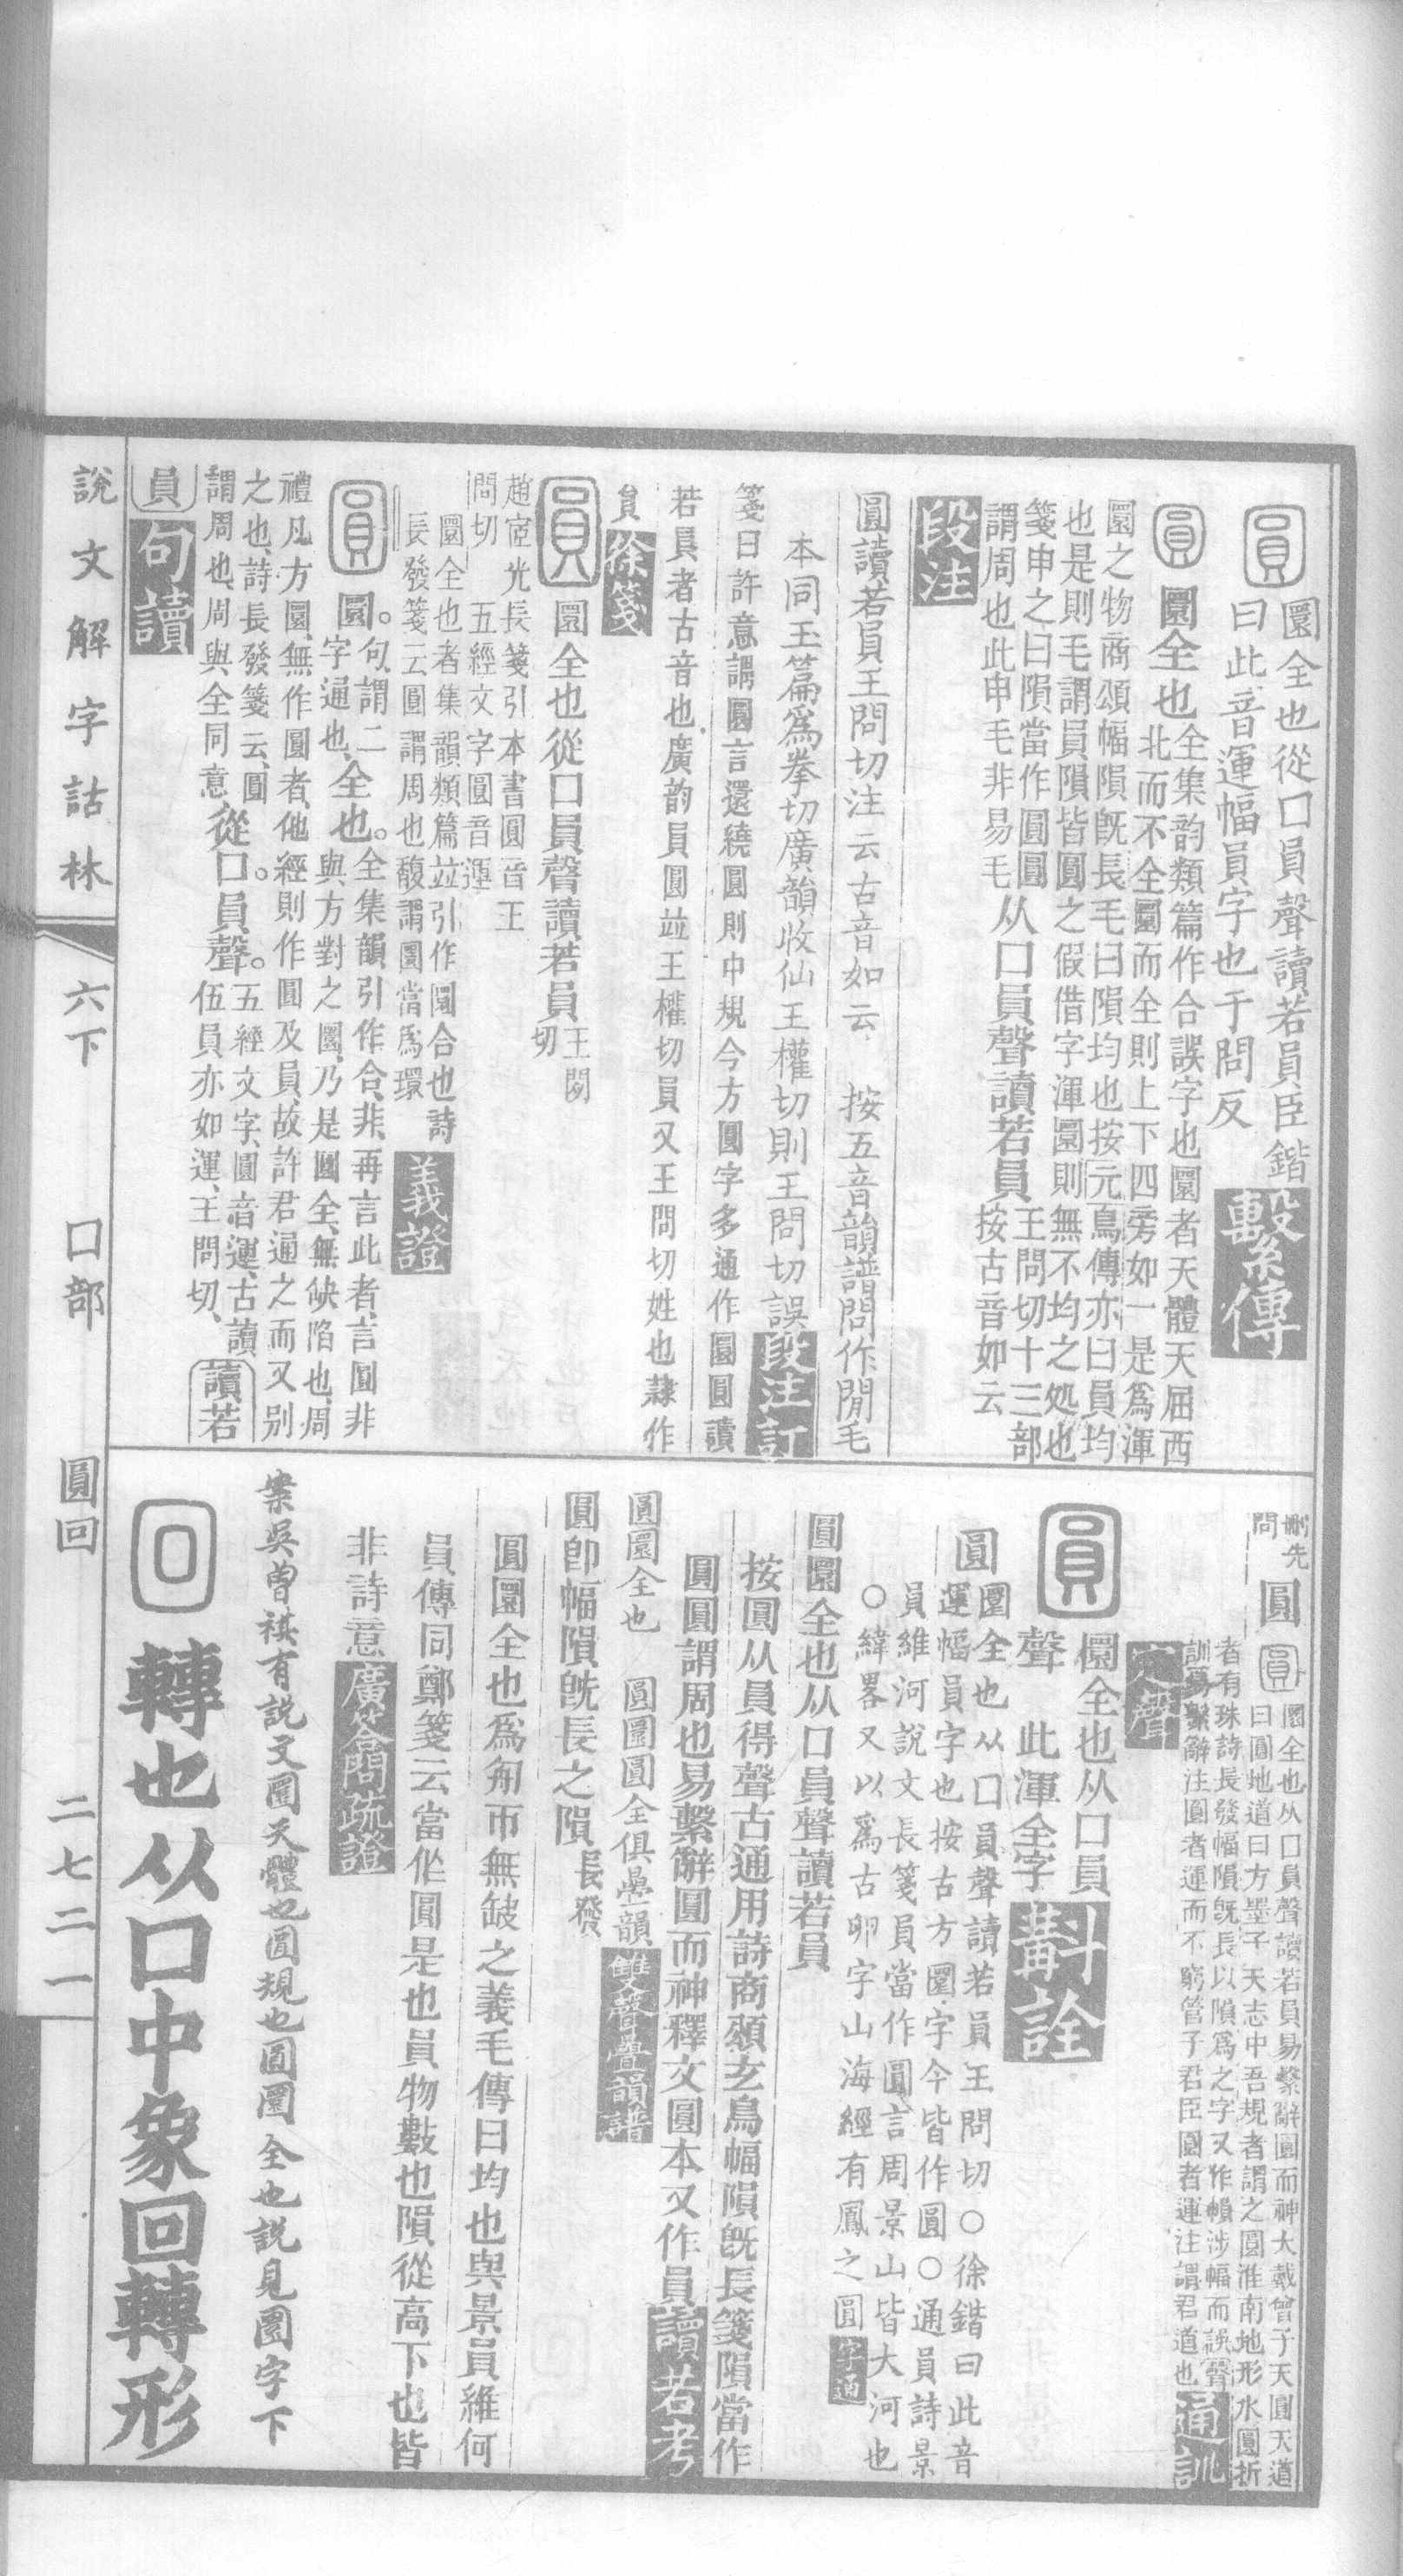 圓
圜全也從囗員聲讀若員臣鍇
曰此音運幅員字也于問反
繫傳
圓
圜全也
全集韵類篇作合誤字也圜者天體天屈西
北而不全圜而全則上下四旁如一是爲渾
圜之物商頌幅隕旣長毛曰隕均也按元鳥傳亦曰員均
也是則毛謂員隕皆圓之假借字渾圜則無不均之処也
箋申之曰隕當作圓圓
謂周也此申毛非易毛
从囗員聲讀若員
王問切十三部
按古音如云
段注
圓讀若員王問切注云古音如云 按五音韻譜問作閒毛
本同玉篇爲拳切廣韻收仙王權切則王問切誤
段注訂
箋曰許意謂圓言還繞圓則中規今方圓字多通作圜圓讀
若員者古音也廣韵員圓竝王權切員又王問切姓也隷作
貟
徐箋
圓
圜全也從囗員聲讀若員
王問
切
趙宧光長箋引本書圓音王
問切 五經文字圓音運
圜全也者集韻類篇竝引作圜合也詩
長發箋云圓謂周也馥謂圜當爲環
義證
圓
圜。
句謂二
字通也、
全也。
全集韻引作合、非、再言此者、言圓非
與方對之圜、乃是圓全、無缺陷也、周
禮凡方圜、無作圓者、他經則作圓及員、故許君通之而又別
之也、詩長發箋云、圓
謂周也、周與全同意
從囗員聲。
五經文字、圓音運、古讀
伍員亦如運、王問切、
讀若
員
句讀
說文解字詁林
六下
囗部
圓回
二七二一
刪先
問
圓
圓
圜全也从囗員聲讀若員易繫辭圓而神大戴曾子天圓天道
曰圓地道曰方墨子天志中吾規者謂之圓淮南地形水圓折
者有珠詩長發幅隕旣長以隕爲之字又作幊涉幅而誤聲
訓易繫辭注圓者運而不窮管子君臣圓者運注謂君道也
通訓
定聲
圓
圜全也从囗員
聲 此渾全字
斠詮
圓
圜全也从囗員聲讀若員王問切○徐鍇曰此音
運幅員字也按古方圜字今皆作圓○通員詩景
員維河說文長箋員當作圓言周景山皆大河也
○緯畧又以爲古卵字山海經有鳳之圓
字通
圓圜全也从囗員聲讀若員
按圓从員得聲古通用詩商頌玄鳥幅隕旣長箋隕當作
圓圓謂周也易繫辭圓而神釋文圓本又作員
讀若考
圓圜全也 圓圜圓全俱疊韻
雙聲疊韻譜
圓卽幅隕旣長之隕
長發
圓圜全也爲匊帀無缺之義毛傳曰均也與景員維何
員傳同鄭箋云當作圓是也員物數也隕從高下也皆
非詩意
廣荅問疏證
案吳曾祺有說文圜天體也圓規也圓圜全也說見圜字下
回
轉也从囗中象回轉形